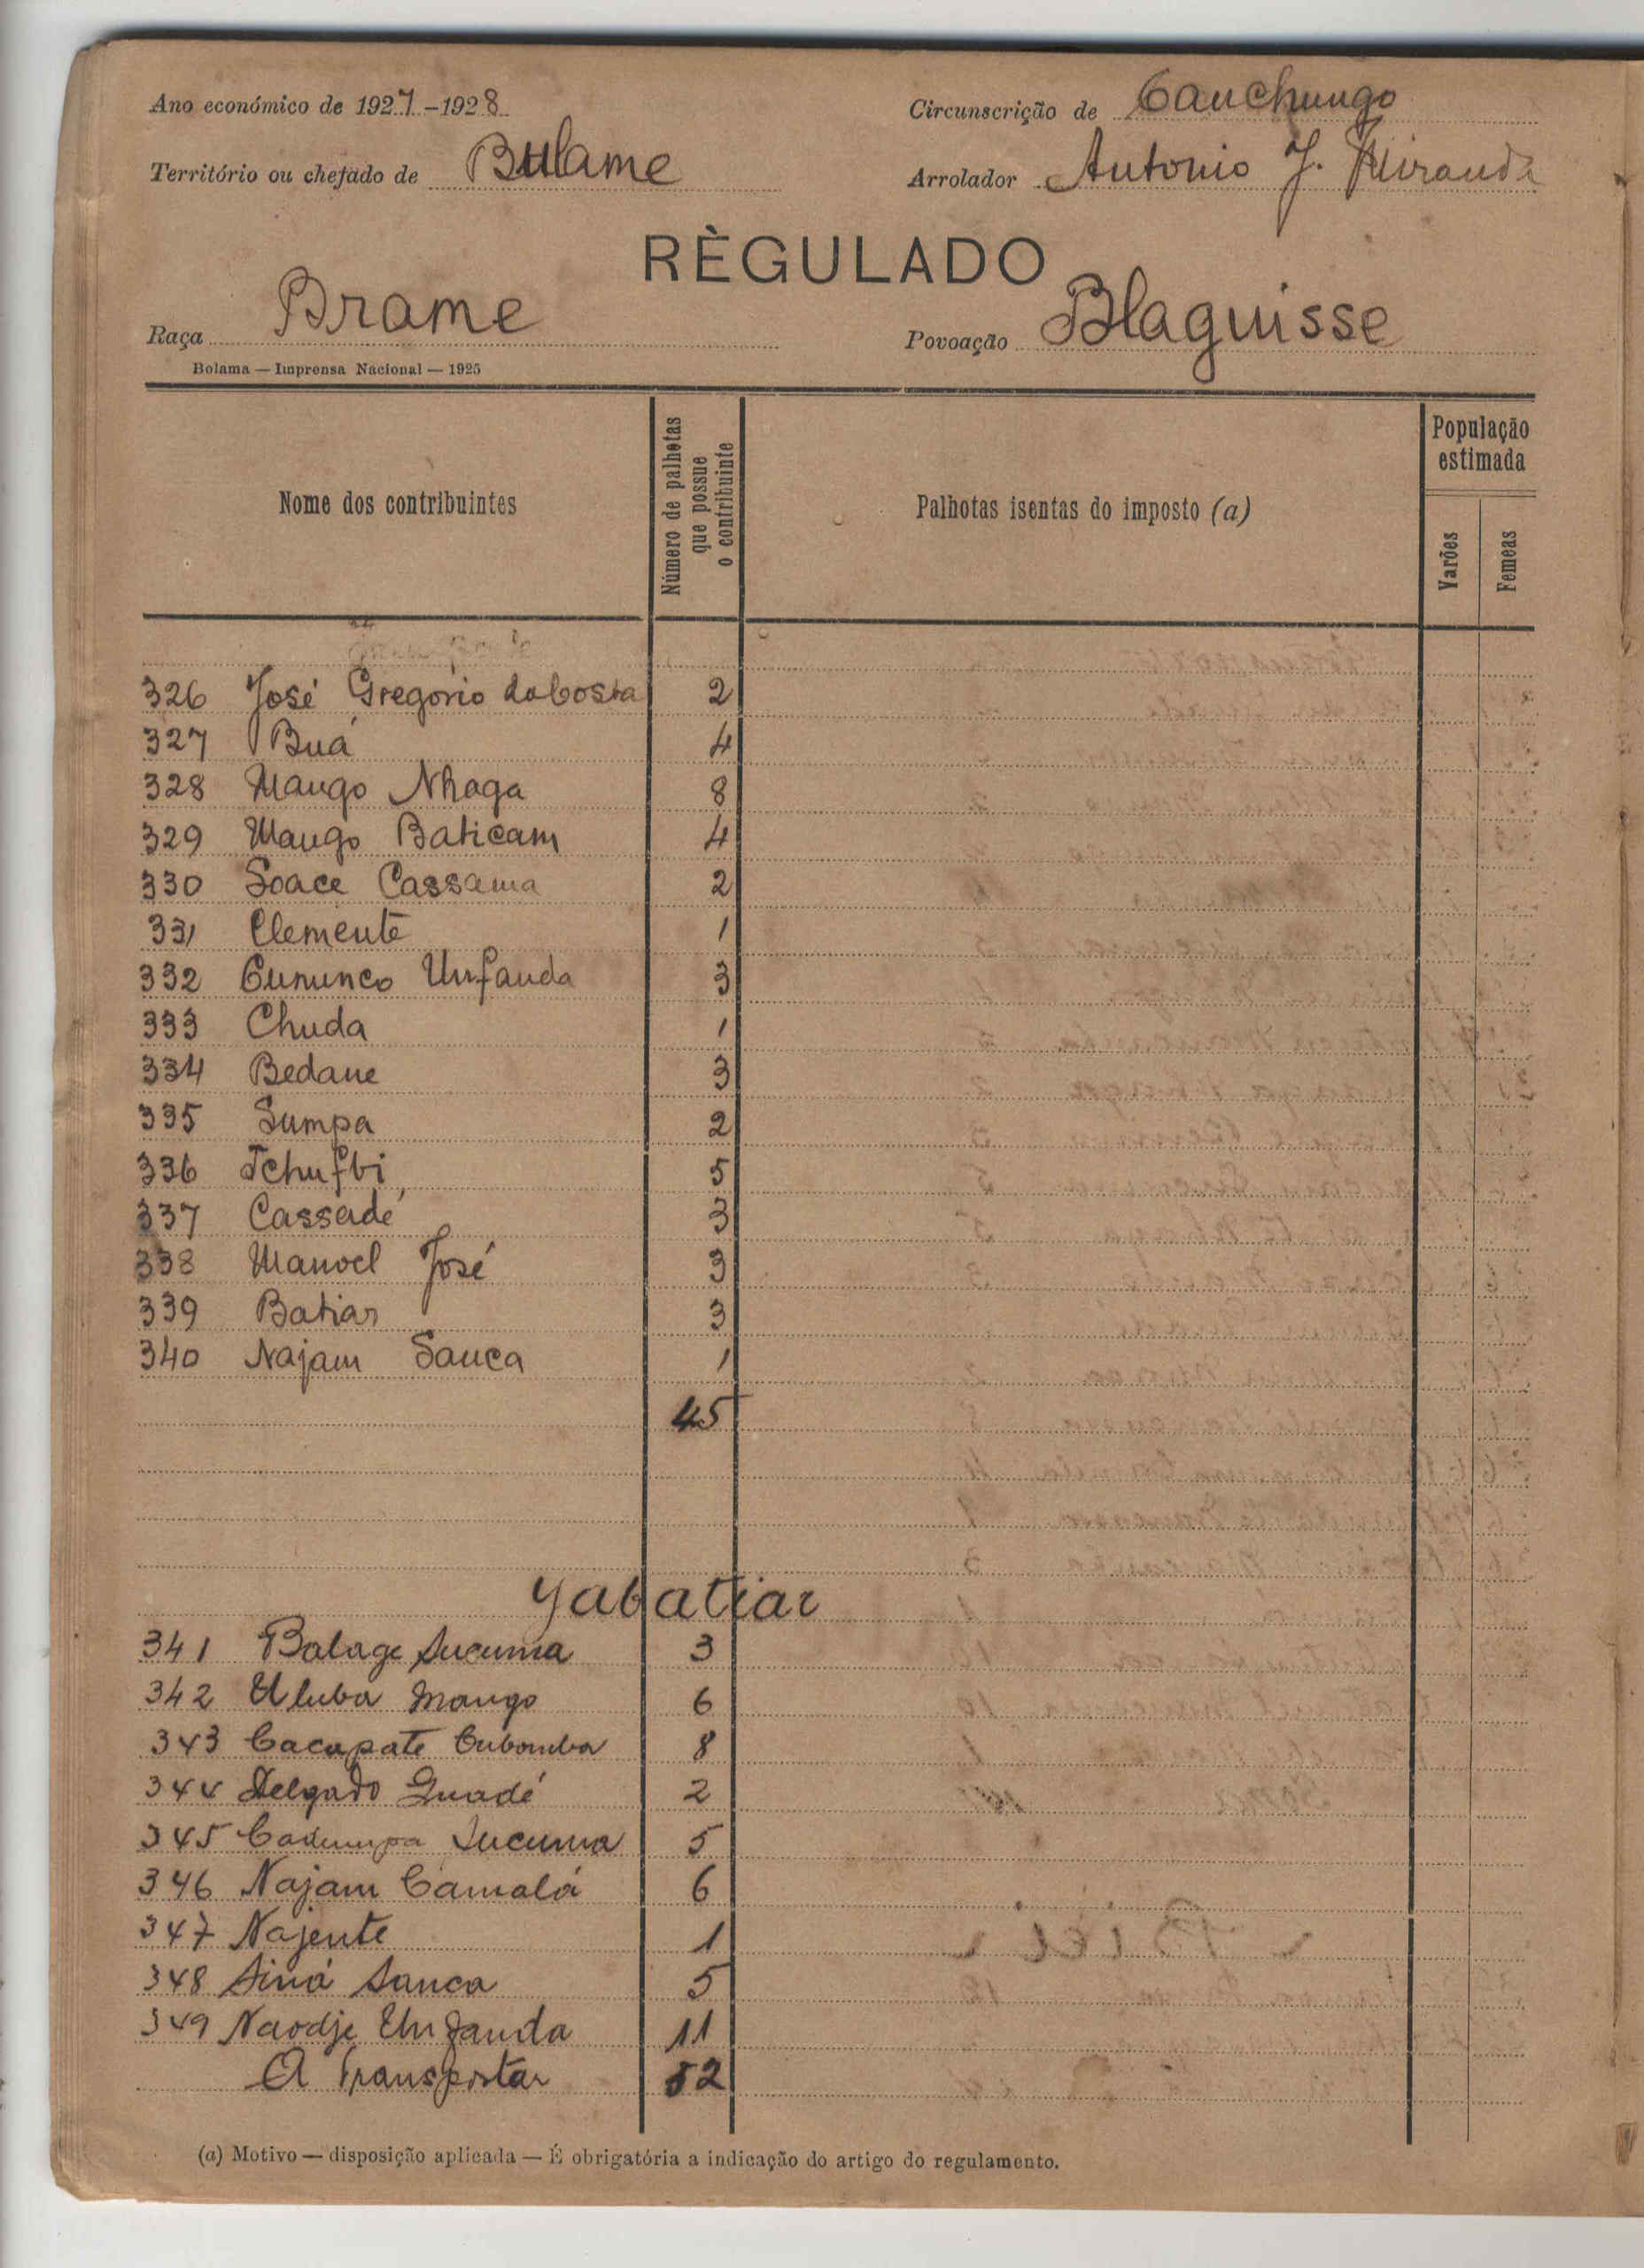 Ano económico de 1927-1928
Circunscrição de Canchungo
Território ou chefado de Bulame
Arrolador Antonio J. Miranda
RÈGULADO
Raça Brame
Povoação Blaguisse
Bolama — Imprensa Nacional — 1925
Nome dos contribuintes
Número de palhotas que possue o contribuinte
Palhotas isentas do imposto (a)
População estimada
Varões
Femeas
326 José Gregorio da Costa 2
327 Buá 4
328 Mango Nhaga 8
329 Mango Baticam 4
330 Soace Cassama 2
331 Clemente 1
332 Cununco Unfanda 3
333 Chuda 1
334 Bedane 3
335 Sumpa 2
336 Tchufbi 5
337 Cassadé 3
338 Manoel José 3
339 Batiar 3
340 Najam Sanca 1
45
Yabatiar
341 Balage Sucuma 3
342 Uluba Mango 6
343 Cacapate Cubomba 8
344 Delgado Quadé 2
345 Cadumpa Sucuma 5
346 Najam Camalá 6
347 Najente 1
348 Siná Sanca 5
349 Naodje Unfanda 11
A Transportar 52
(a) Motivo — disposição aplicada — É obrigatória a indicação do artigo do regulamento.